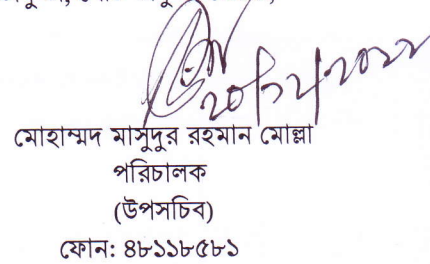 ২০/১২/২০২২
মোহাম্মদ মাসুদুর রহমান মোল্লা
পরিচালক
(উপসচিব)
ফোন: ৪৮১১৮৫৮১